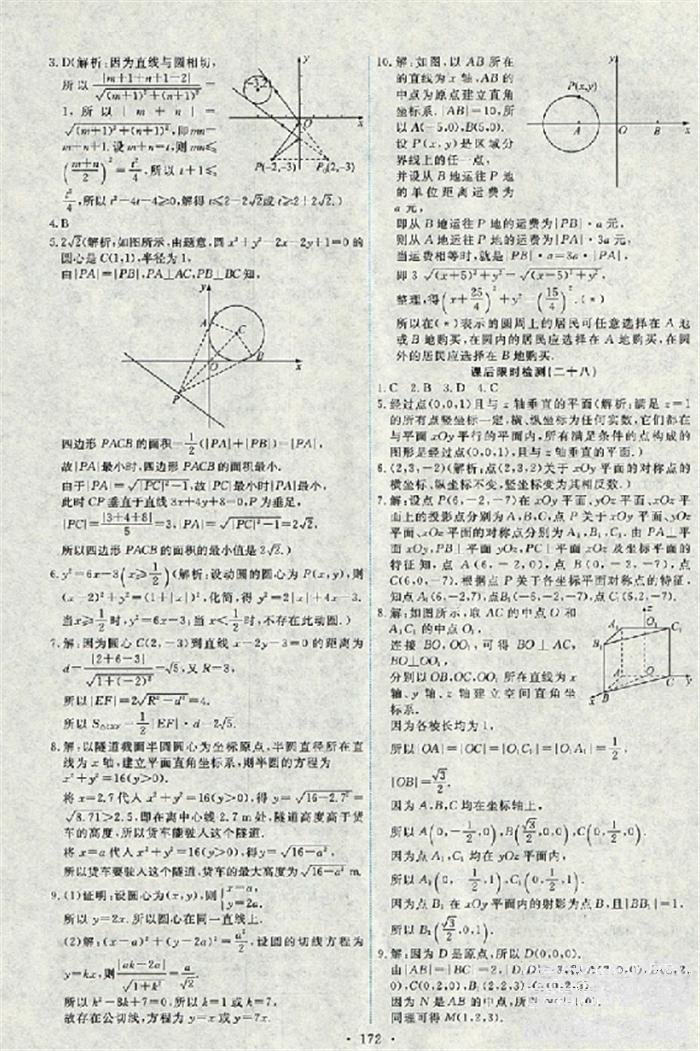 3. D(解析:因为直线与圆相切,
所以|m+1+n+1-2|/√((m+1)²+(n+1)²)=
1,所以|m+n|=
√((m+1)²+(n+1)²),即mn=
m+n+1.设m+n=t,则mn≤
((m+n)/2)²=t²/4,所以t+1≤
t²/4,所以t²-4t-4≥0,解得t≤2-2√2或t≥2+2√2.)
4. B
5. 2√2(解析:如图所示,由题意,圆x²+y²-2x-2y+1=0的
圆心是C(1,1),半径为1.
由|PA|=|PB|,PA⊥AC,PB⊥BC知,
四边形PACB的面积=1/2(|PA|+|PB|)=|PA|,
故|PA|最小时,四边形PACB的面积最小.
由于|PA|=√(|PC|²-1),故PC最小时|PA|最小,
此时CP垂直于直线3x+4y+8=0,P为垂足,
|PC|=|3+4+8|/5=3,|PA|=√(|PC|²-1)=2√2,
所以四边形PACB的面积的最小值是2√2.)
6. y²=6x-3(x≥1/2)(解析:设动圆的圆心为P(x,y),则
(x-2)²+y²=(1+|x|)²,化简,得y²=2|x|+4x-3.
当x≥1/2时,y²=6x-3;当x<1/2时,不存在此动圆.)
7. 解:因为圆心C(2,-3)到直线x-2y-3=0的距离为
d=|2+6-3|/√(1+(-2)²)=√5,又R=3,
所以|EF|=2√(R²-d²)=4.
所以S△CEF=1/2|EF|·d=2√5.
8. 解:以隧道截面半圆圆心为坐标原点,半圆直径所在直
线为x轴,建立平面直角坐标系,则半圆的方程为
x²+y²=16(y>0).
将x=2.7代入x²+y²=16(y>0),得y=√(16-2.7²)=
√8.71>2.5,即在离中心线2.7 m处,隧道高度高于货
车的高度,所以货车能驶入这个隧道.
将x=a代入x²+y²=16(y>0),得y=√(16-a²),
所以货车要驶入这个隧道,货车的最大高度为√(16-a²) m.
9. (1)证明:设圆心为(x,y),则{x=a, y=2a.
所以y=2x.所以圆心在同一直线上.
(2)解:(x-a)²+(y-2a)²=a²/2,设圆的切线方程为
y=kx,则|ak-2a|/√(1+k²)=a/√2.
所以k²-8k+7=0.所以k=1或k=7,
故存在公切线,方程为y=x或y=7x.
10. 解:如图,以AB所在
的直线为x轴,AB的
中点为原点建立直角
坐标系.|AB|=10,所
以A(-5,0),B(5,0).
设P(x,y)是区域分
界线上的任一点,
并设从B地运往P地
的单位距离运费为
a元,
即从B地运往P地的运费为|PB|·a元,
则从A地运往P地的运费为|PA|·3a元.
当运费相等时,就是|PB|·a=3a·|PA|,
即3√((x+5)²+y²)=√((x-5)²+y²),
整理,得(x+25/4)²+y²=(15/4)².(*)
所以在(*)表示的圆周上的居民可任意选择在A地
或B地购买,在圆内的居民应选择在A地购买,在圆
外的居民应选择在B地购买.
课后限时检测(二十八)
1. C 2. B 3. D 4. C
5. 经过点(0,0,1)且与z轴垂直的平面(解析:满足z=1
的所有点竖坐标一定,横、纵坐标为任何实数,它们都在
与平面xOy平行的平面内,所有满足条件的点构成的
图形是经过点(0,0,1),且与z轴垂直的平面.)
6. (2,3,-2)(解析:点(2,3,2)关于xOy平面的对称点的
横坐标、纵坐标不变,竖坐标变为其相反数.)
7. 解:设点P(6,-2,-7)在xOy平面、yOz平面、xOz平
面上的投影点分别为A,B,C,点P关于xOy平面、yOz
平面、xOz平面的对称点分别为A₁,B₁,C₁.由PA⊥平
面xOy,PB⊥平面yOz,PC⊥平面xOz及坐标平面的
特征知,点A(6,-2,0),点B(0,-2,-7),点
C(6,0,-7).根据点P关于各坐标平面对称点的特征,
知点A₁(6,-2,7),点B₁(-6,-2,-7),点C₁(6,2,-7).
8. 解:如图所示,取AC的中点O和
A₁C₁的中点O₁,
连接BO,OO₁,可得BO⊥AC,
BO⊥OO₁,
分别以OB,OC,OO₁所在直线为x
轴、y轴、z轴建立空间直角坐
标系.
因为各棱长均为1,
所以|OA|=|OC|=|O₁C₁|=|O₁A₁|=1/2,
|OB|=√3/2.
因为A,B,C均在坐标轴上,
所以A(0,-1/2,0),B(√3/2,0,0),C(0,1/2,0).
因为点A₁,C₁均在yOz平面内,
所以A₁(0,-1/2,1),C₁(0,1/2,1).
因为点B₁在xOy平面内的射影为点B,且|BB₁|=1.
所以B₁(√3/2,0,1).
9. 解:因为D是原点,所以D(0,0,0).
由|AB|=|BC|=2,
0),C(0,2,0),B₁(2,2,3),
因为N是AB的中点,所以
同理可得M(1,2,3).
· 172 ·